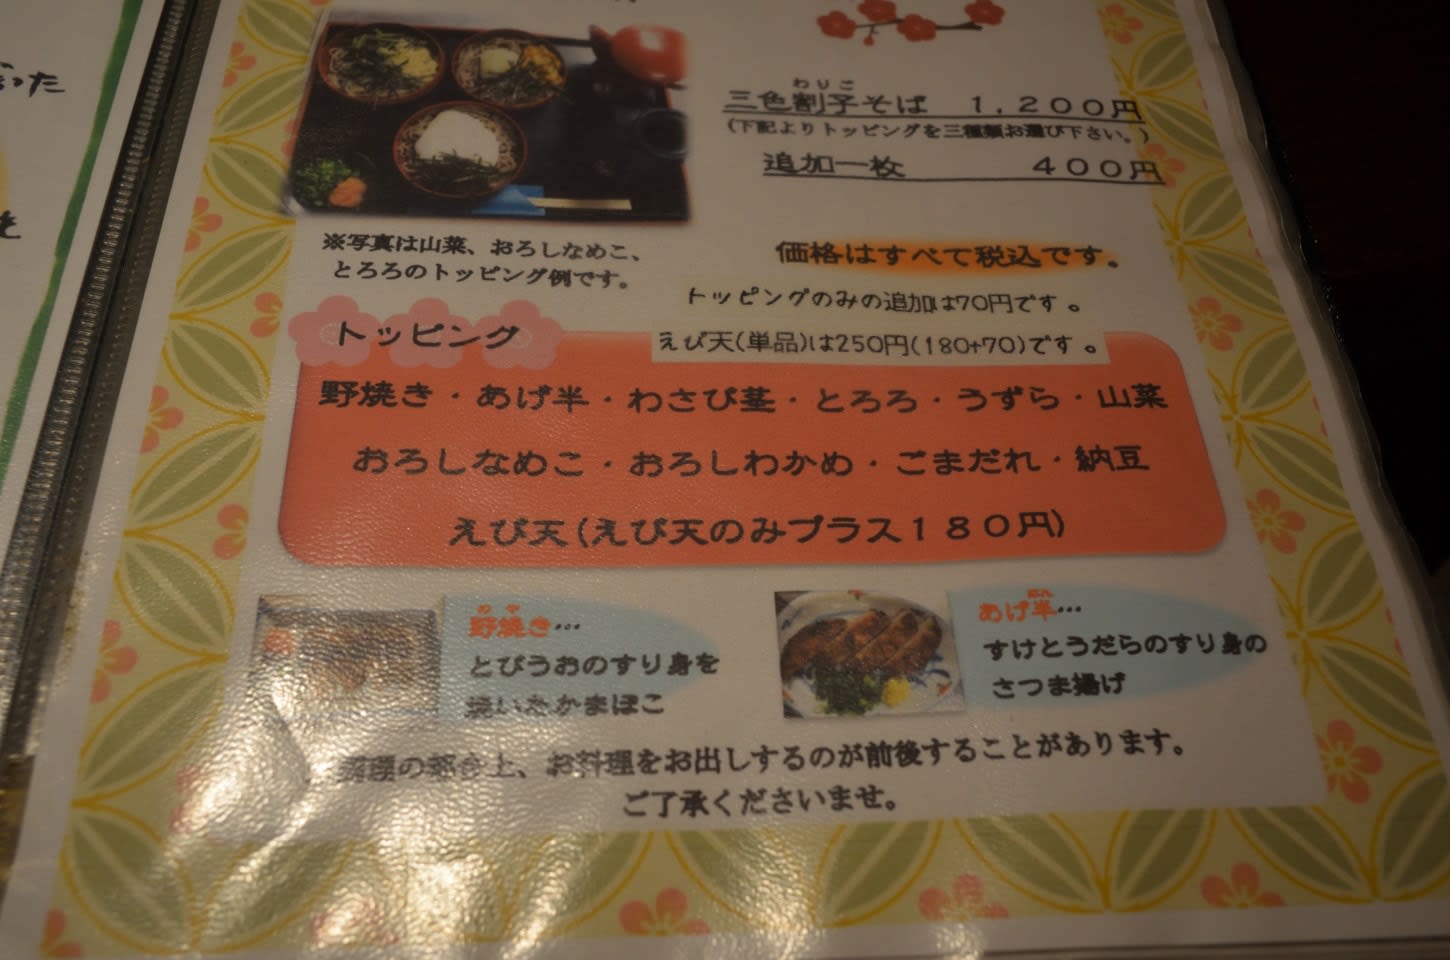 った
そ
わりご
三色割子そば 1,200円
(下記よりトッピングを三種類お選び下さい。)
追加一枚 400円
※写真は山菜、おろしなめこ、
とろろのトッピング例です。
価格はすべて税込です。
トッピングのみの追加は70円です。
えび天(単品)は250円(180+70)です。
トッピング
野焼き・あげ半・わさび茎・とろろ・うずら・山菜
おろしなめこ・おろしわかめ・ごまだれ・納豆
えび天(えび天のみプラス180円)
のや
野焼き…
とびうおのすり身を
焼いたかまぼこ
はん
あげ半…
すけとうだらのすり身の
さつま揚げ
調理の都合上、お料理をお出しするのが前後することがあります。
ご了承くださいませ。